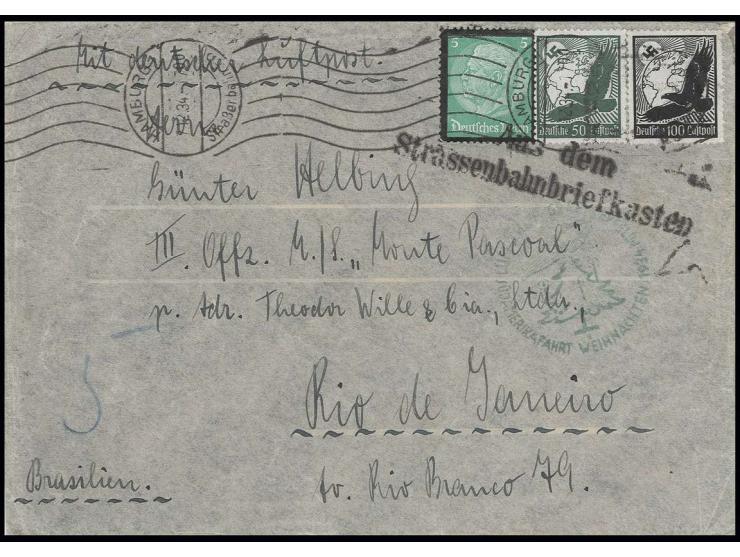 Mit deutscher Luftpost.
HAMBURG
34
Straßenbahn
5 5
Deutsches Reich
HAMBURG
Deutsche 50 Luftpost
Deutsche 100 Luftpost
Aus dem
Strassenbahnbriefkasten
Herrn
Günter Helbing
III. Offz. M./S. „Monte Pascoal"
p. Adr. Theodor Wille & Cia., Ltda.,
AMERIKAFAHRT WEIHNACHTEN 1934
Rio de Janeiro
Av. Rio Branco 79.
Brasilien.